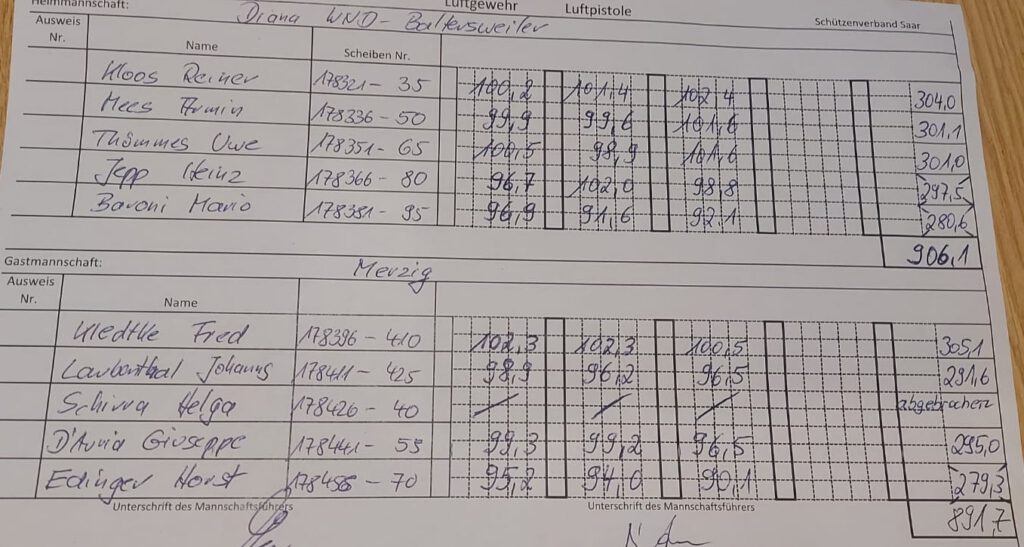 Heimmannschaft: Diana WND-Baltersweiler Luftgewehr Luftpistole Schützenverband Saar
Ausweis Nr. Name Scheiben Nr.
Kloos Reiner 178321 - 35 100,2 101,4 102,4 304,0
Hees Armin 178336 - 50 99,9 99,6 101,6 301,1
Thömmes Uwe 178351 - 65 100,5 98,9 101,6 301,0
Jepp Heinz 178366 - 80 96,7 102,0 98,8 297,5
Baroni Mario 178381 - 95 96,9 91,6 92,1 280,6
906,1
Gastmannschaft: Merzig
Ausweis Nr. Name
Kledtke Fred 178396 - 410 102,3 102,3 100,5 305,1
Laubenthal Johannes 178411 - 425 98,9 96,2 96,5 291,6
Schirra Helga 178426 - 40 / / / abgebrochen
D'Auria Giuseppe 178441 - 55 99,3 99,2 96,5 295,0
Edinger Horst 178456 - 70 95,2 94,0 90,1 279,3
Unterschrift des Mannschaftsführers Unterschrift des Mannschaftsführers
891,7